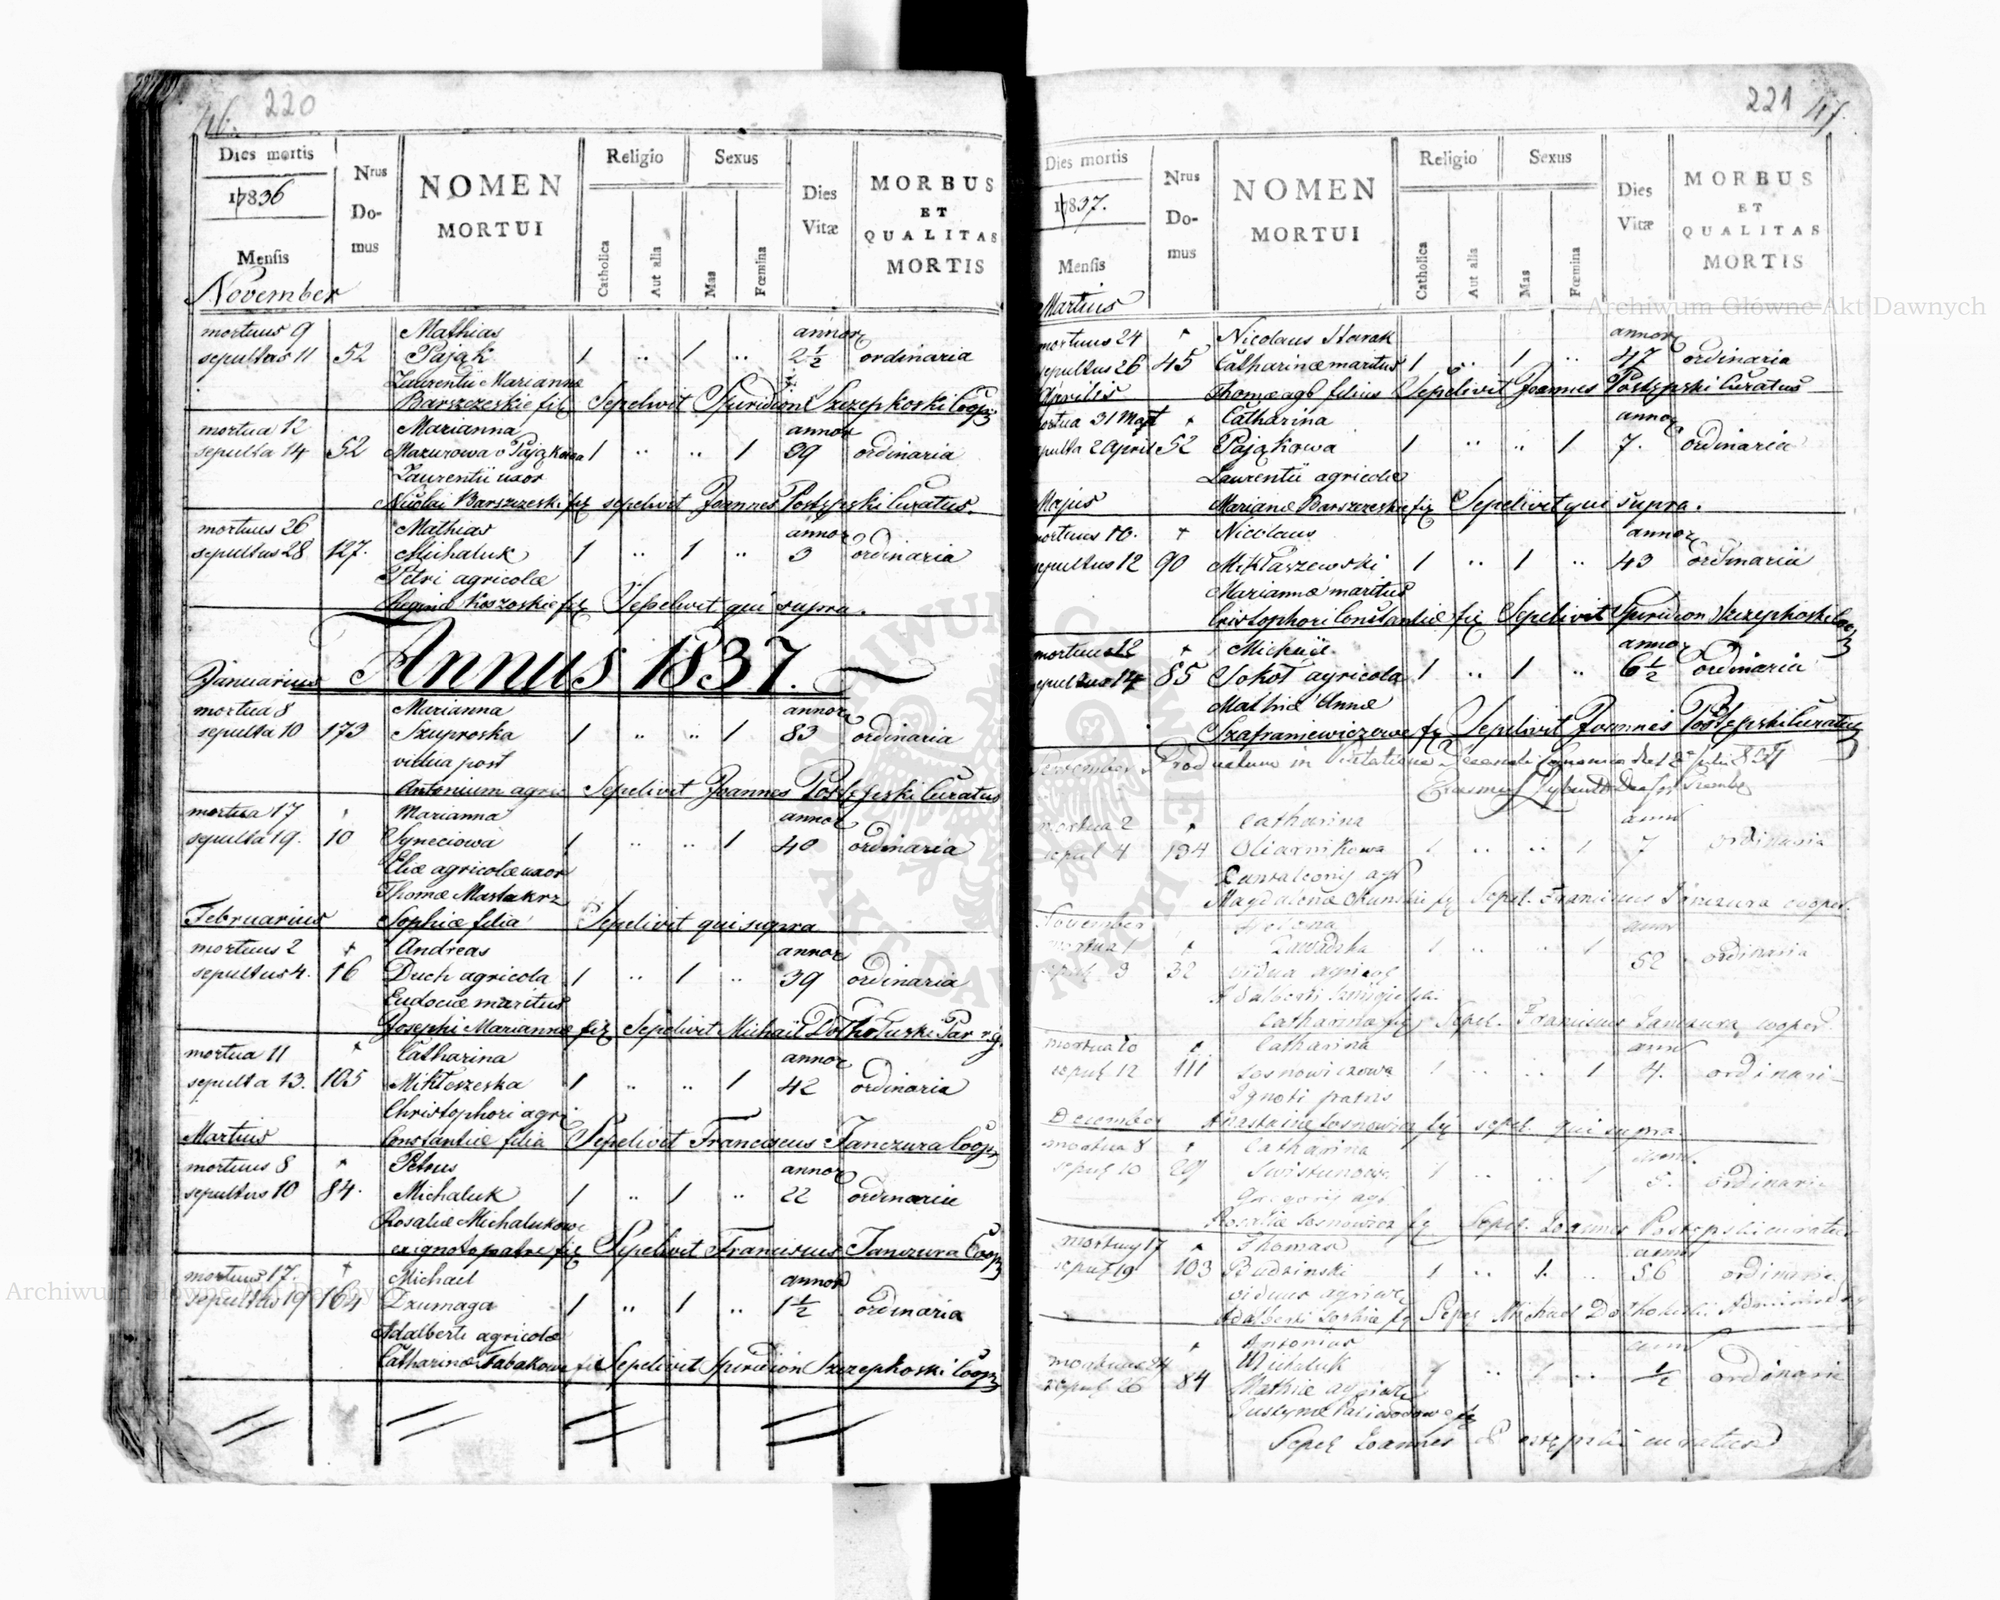 220
Dies mortis
Nrus Domus
NOMEN MORTUI
Religio
Sexus
Catholica
Aut alia
Mas
Fœmina
Dies Vitæ
MORBUS ET QUALITAS MORTIS
17836
Mensis
November
mortuus 9 Mathias annor
sepultus 11 52 Pająk 1 .. 1 .. 2 1/2 ordinaria
Laurentii Marianna
Barszezeskie fil Sepelivit Spiridion Szczepkoski Coop
mortua 12 Marianna annor
sepulta 14 52 Mazurowa o Pająkowa 1 .. .. 1 39 ordinaria
Laurentii uxor
Nicolai Barszezeski fil sepelivit Joannes Postępski Curatus.
mortuus 26 Mathias annor
sepultus 28 127. Michaluk 1 .. 1 .. 3 ordinaria
Petri agricolæ
Sepelivit qui supra.
Annus 1837.
Januarius
mortua 8 Marianna annor
sepulta 10 173 Szuproska 1 .. .. 1 83 ordinaria
vidua post
Antonium agric Sepelivit Joannes Postępski Curatus
mortua 17 Marianna annor
sepulta 19. 10 Syneciowa 1 .. .. 1 40 ordinaria
Eliæ agricolæ uxor
Thomæ Mastakrz
Februarius Sophiæ filia Sepelivit qui supra
mortuus 2 + Andreas annor
sepultus 4. 16 Duch agricola 1 .. 1 .. 39 ordinaria
Eudociæ maritus
Josephi Mariannæ fil Sepelivit Michail
mortua 11 Catharina annor
sepulta 13. 105 Mikłoszeska 1 .. .. 1 42 ordinaria
Christophori agri
Martius Constantiæ filia Sepelivit Franciscus Janczura Coop
mortuus 8 Petrus annor
sepultus 10 84. Michaluk 1 .. 1 .. 22 ordinaria
Rosaliæ Michalukowe
ex ignoto patre fil Sepelivit Franciscus Janczura Coop
mortuus 17. + Michael annor
sepultus 19 164 Dzumaga 1 .. 1 .. 1 1/2 ordinaria
Adalberti agricolæ
Catharinæ Tabakowe fil Sepelivit Spiridion Szczepkoski Coop
221 47.
Dies mortis
Nrus Domus
NOMEN MORTUI
Religio
Sexus
Catholica
Aut alia
Mas
Fœmina
Dies Vitæ
MORBUS ET QUALITAS MORTIS
17837.
Mensis
Martius
mortuus 24 Nicolaus Starak annor
sepultus 26 45 Catharinæ maritus 1 .. 1 .. 47 ordinaria
Aprilis Thomæ agr filius Sepelivit Joannes Postępski Curatus
mortua 31 Mart Catharina annor
sepulta 2 April 52 Pająkowa 1 .. .. 1 7. ordinaria
Laurentii agricolæ
Majus Marianæ Barszezeskie fil Sepelivit qui supra.
mortuus 10. + Nicolaus annor
sepultus 12 90 Mikłaszewski 1 .. 1 .. 43 ordinaria
Mariannæ maritus
Cristophori Constantiæ fil Sepelivit Spiridion Szczepkoski Coop
mortuus 12 Michael annor
sepultus 14 85 Sokoł agricola 1 .. 1 .. 6 1/2 ordinaria
Mathiæ Annæ
Szafraniewiczowe fil Sepelivit Joannes Postępski Curatus
September Productum in Visitatione Decanali
mortua 2 Catharina ann
sepul 4 134 Oliarnikowa 1 .. .. 1 7 ordinaria
Pantaleonis agr
Magdalenæ fil Sepel. Franciscus Janczura cooper.
November Helena ann
mortua 1 Zawadska 1 .. .. 1 52 ordinaria
sepul 3 32 vidua agricol
Adalberti
Catharinæ fil Sepel. Franciscus Janczura cooper.
mortua 10 Catharina ann
sepul 12 111 Sosnowiczowa 1 .. .. 1 4. ordinari
Ignoti patris
December Anastasiæ Sosnowicz fil sepel. qui supra.
mortua 8 Catharina ann.
sepul 10 29 1 .. .. 1 ordinari
Gregorii agr
Rosaliæ Sosnowicz fil Sepel. Joannes Postępski curatus
mortuus 17 Thomas ann
sepul 19 103 Budzinski 1 .. 1. .. 56 ordinaria
viduus agricol
Adalberti Sophiæ fil Sepel Michael
Antonius ann
mortuus 24 Michaluk 1 .. 1 .. 1/2 ordinari
sepul 26 84 Mathiæ agricolæ
Justynæ
Sepel Joannes Postępski curatus
Archiwum Główne Akt Dawnych
Archiwum Główne Akt Dawnych
ARCHIWUM GŁÓWNE AKT DAWNYCH